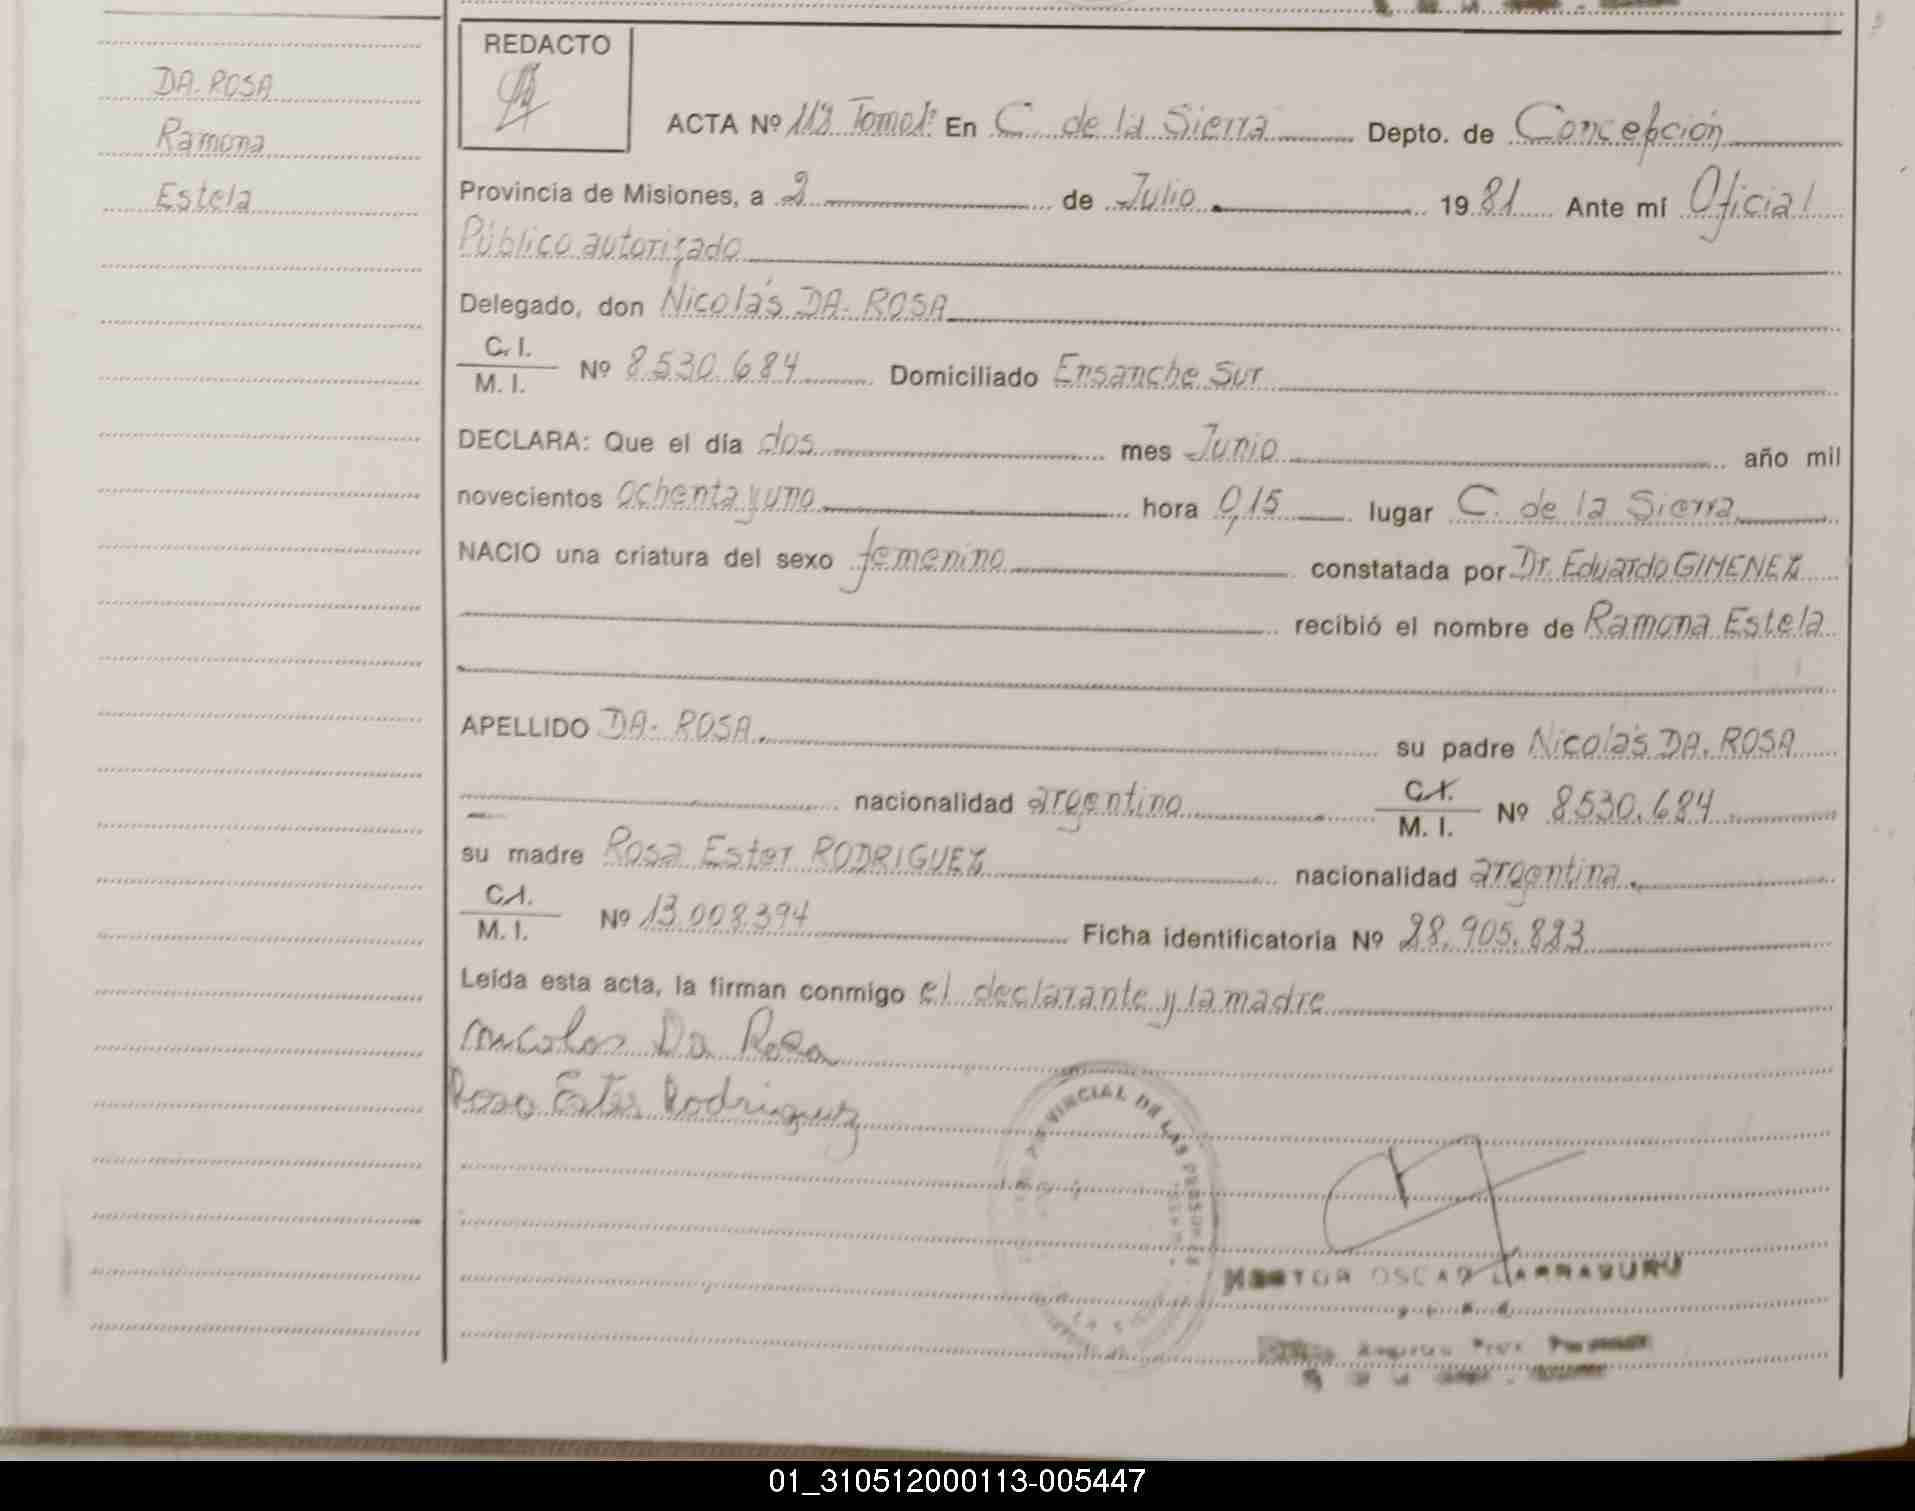 DA-ROSA
Ramona
Estela
REDACTO
ACTA Nº 113 Tomo1º En C. de la Sierra Depto. de Concepción
Provincia de Misiones, a 2 de Julio 1981 Ante mí Oficial
Público autorizado
Delegado, don Nicolás DA-ROSA
C. I.
M. I.
Nº 8.530.684 Domiciliado Ensanche Sur
DECLARA: Que el día dos mes Junio año mil
novecientos ochenta y uno hora 0,15 lugar C. de la Sierra
NACIO una criatura del sexo femenino constatada por Dr. Eduardo GIMENEZ
recibió el nombre de Ramona Estela
APELLIDO DA-ROSA su padre Nicolás DA-ROSA
nacionalidad argentino C.I. M. I. Nº 8530.684
su madre Rosa Ester RODRIGUEZ nacionalidad argentina
C.I.
M. I.
Nº 13.008.394 Ficha identificatoria Nº 28.905.823
Leída esta acta, la firman conmigo el declarante y la madre
Nicolas Da Rosa
Rosa Ester Rodriguez
PROVINCIAL DE LAS PERSONAS
LA
HECTOR OSCAR LARRABURU
01_310512000113-005447